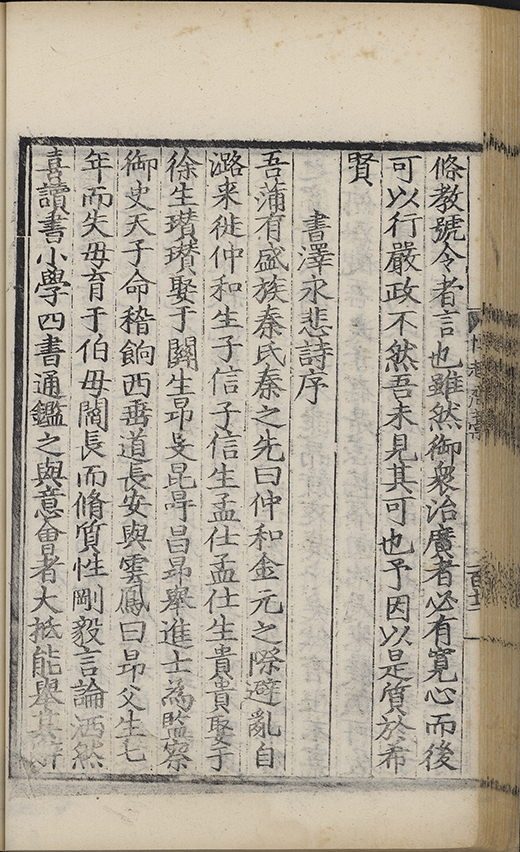 條教號令者言也雖然御衆治廣者必有寬心而後
可以行嚴政不然吾未見其可也予因以是質於希
賢
書澤永悲詩序
吾蒲有盛族秦氏秦之先曰仲和金元之際避亂自
潞来徙仲和生子信子信生孟仕孟仕生貴貴娶于
徐生瓚瓚娶于闗生昂旻昆㝵昌昂舉進士為監察
御史天子命稽餉西垂道長安與雲鳳曰昂父生七
年而失毋育于伯毋閻長而脩質性剛毅言論洒然
喜讀書小學四書通鑑之與意會者大抵能舉其辭